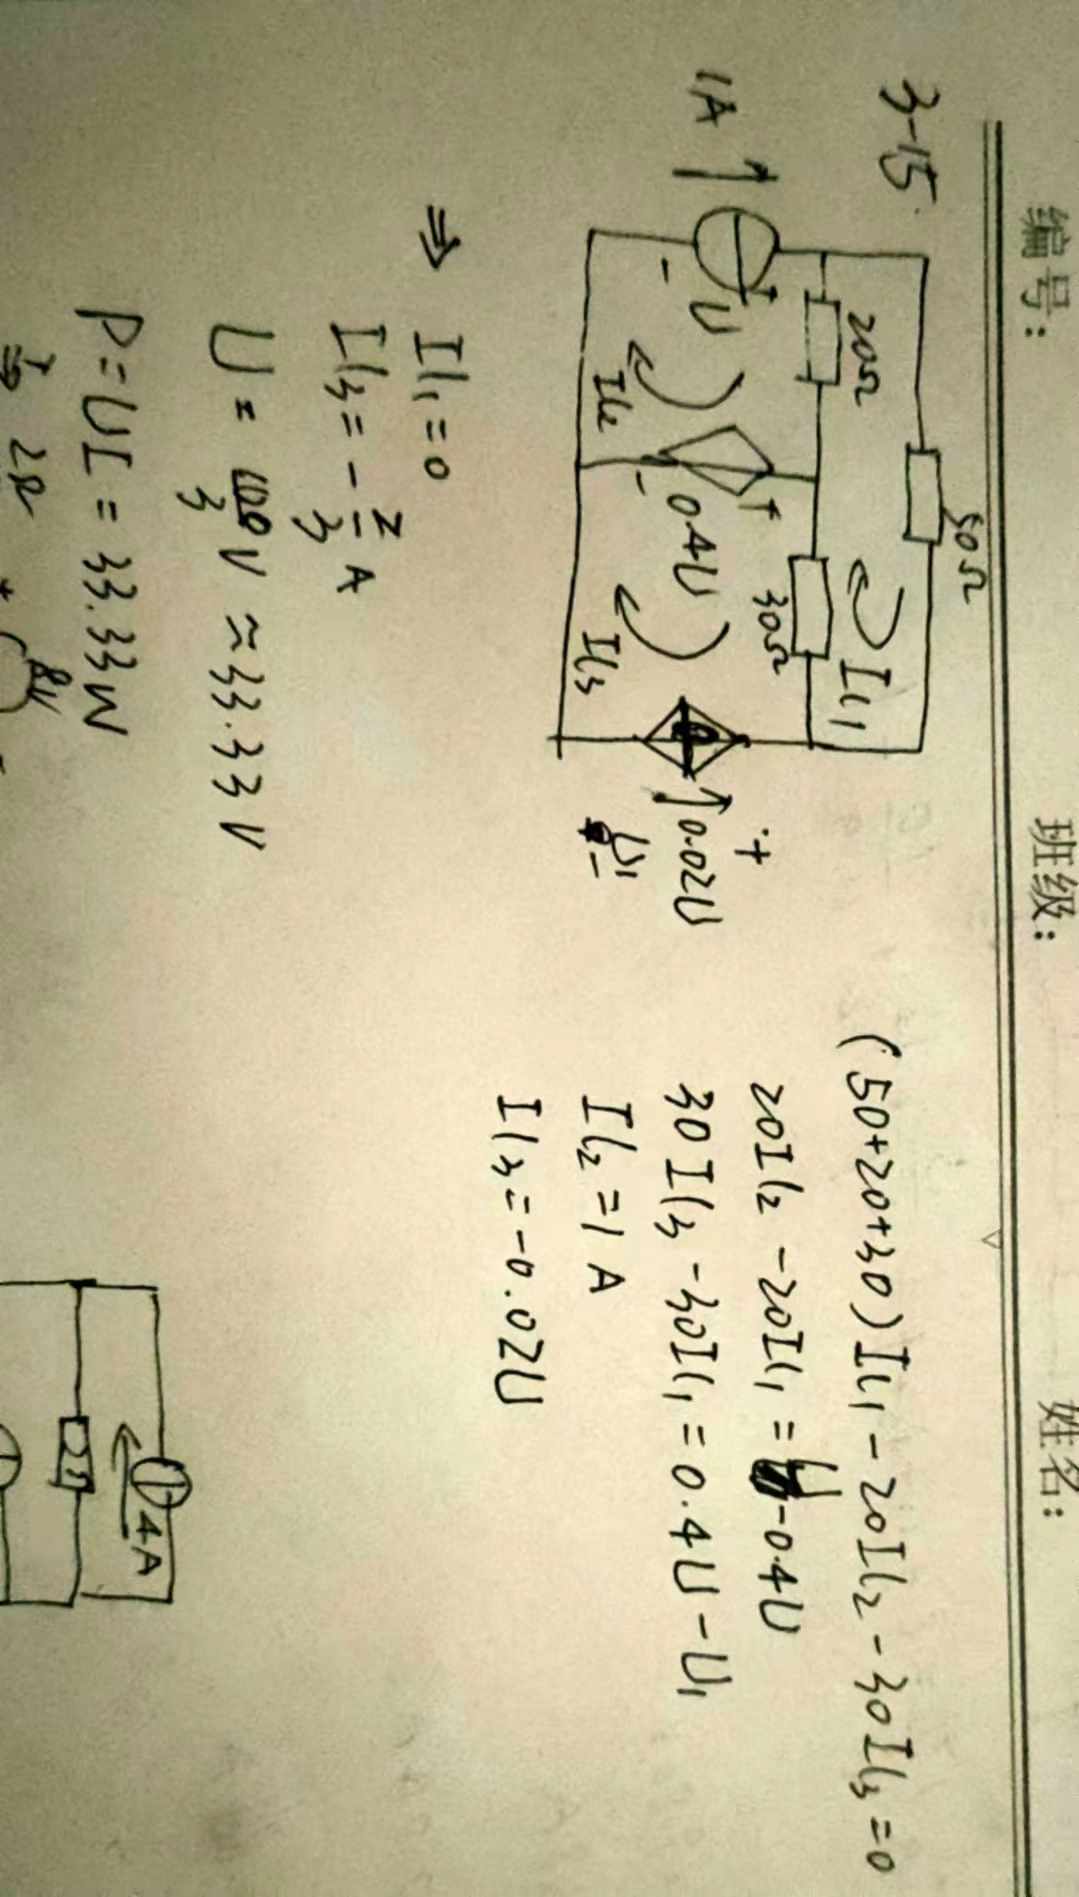 编号: 班级: 姓名:
3-15.
50Ω
20Ω
30Ω
Il1
1A
+
U
-
+
0.4U
-
Il2
Il3
0.02U
+
U1
-
(50+20+30)Il1-20Il2-30Il3=0
20Il2-20Il1=U-0.4U
30Il3-30Il1=0.4U-U1
Il2=1A
Il3=-0.02U
⇒ Il1=0
Il3=-2/3 A
U=100/3 V≈33.33V
P=UI=33.33W
4A
2Ω
2Ω
+
8V
-